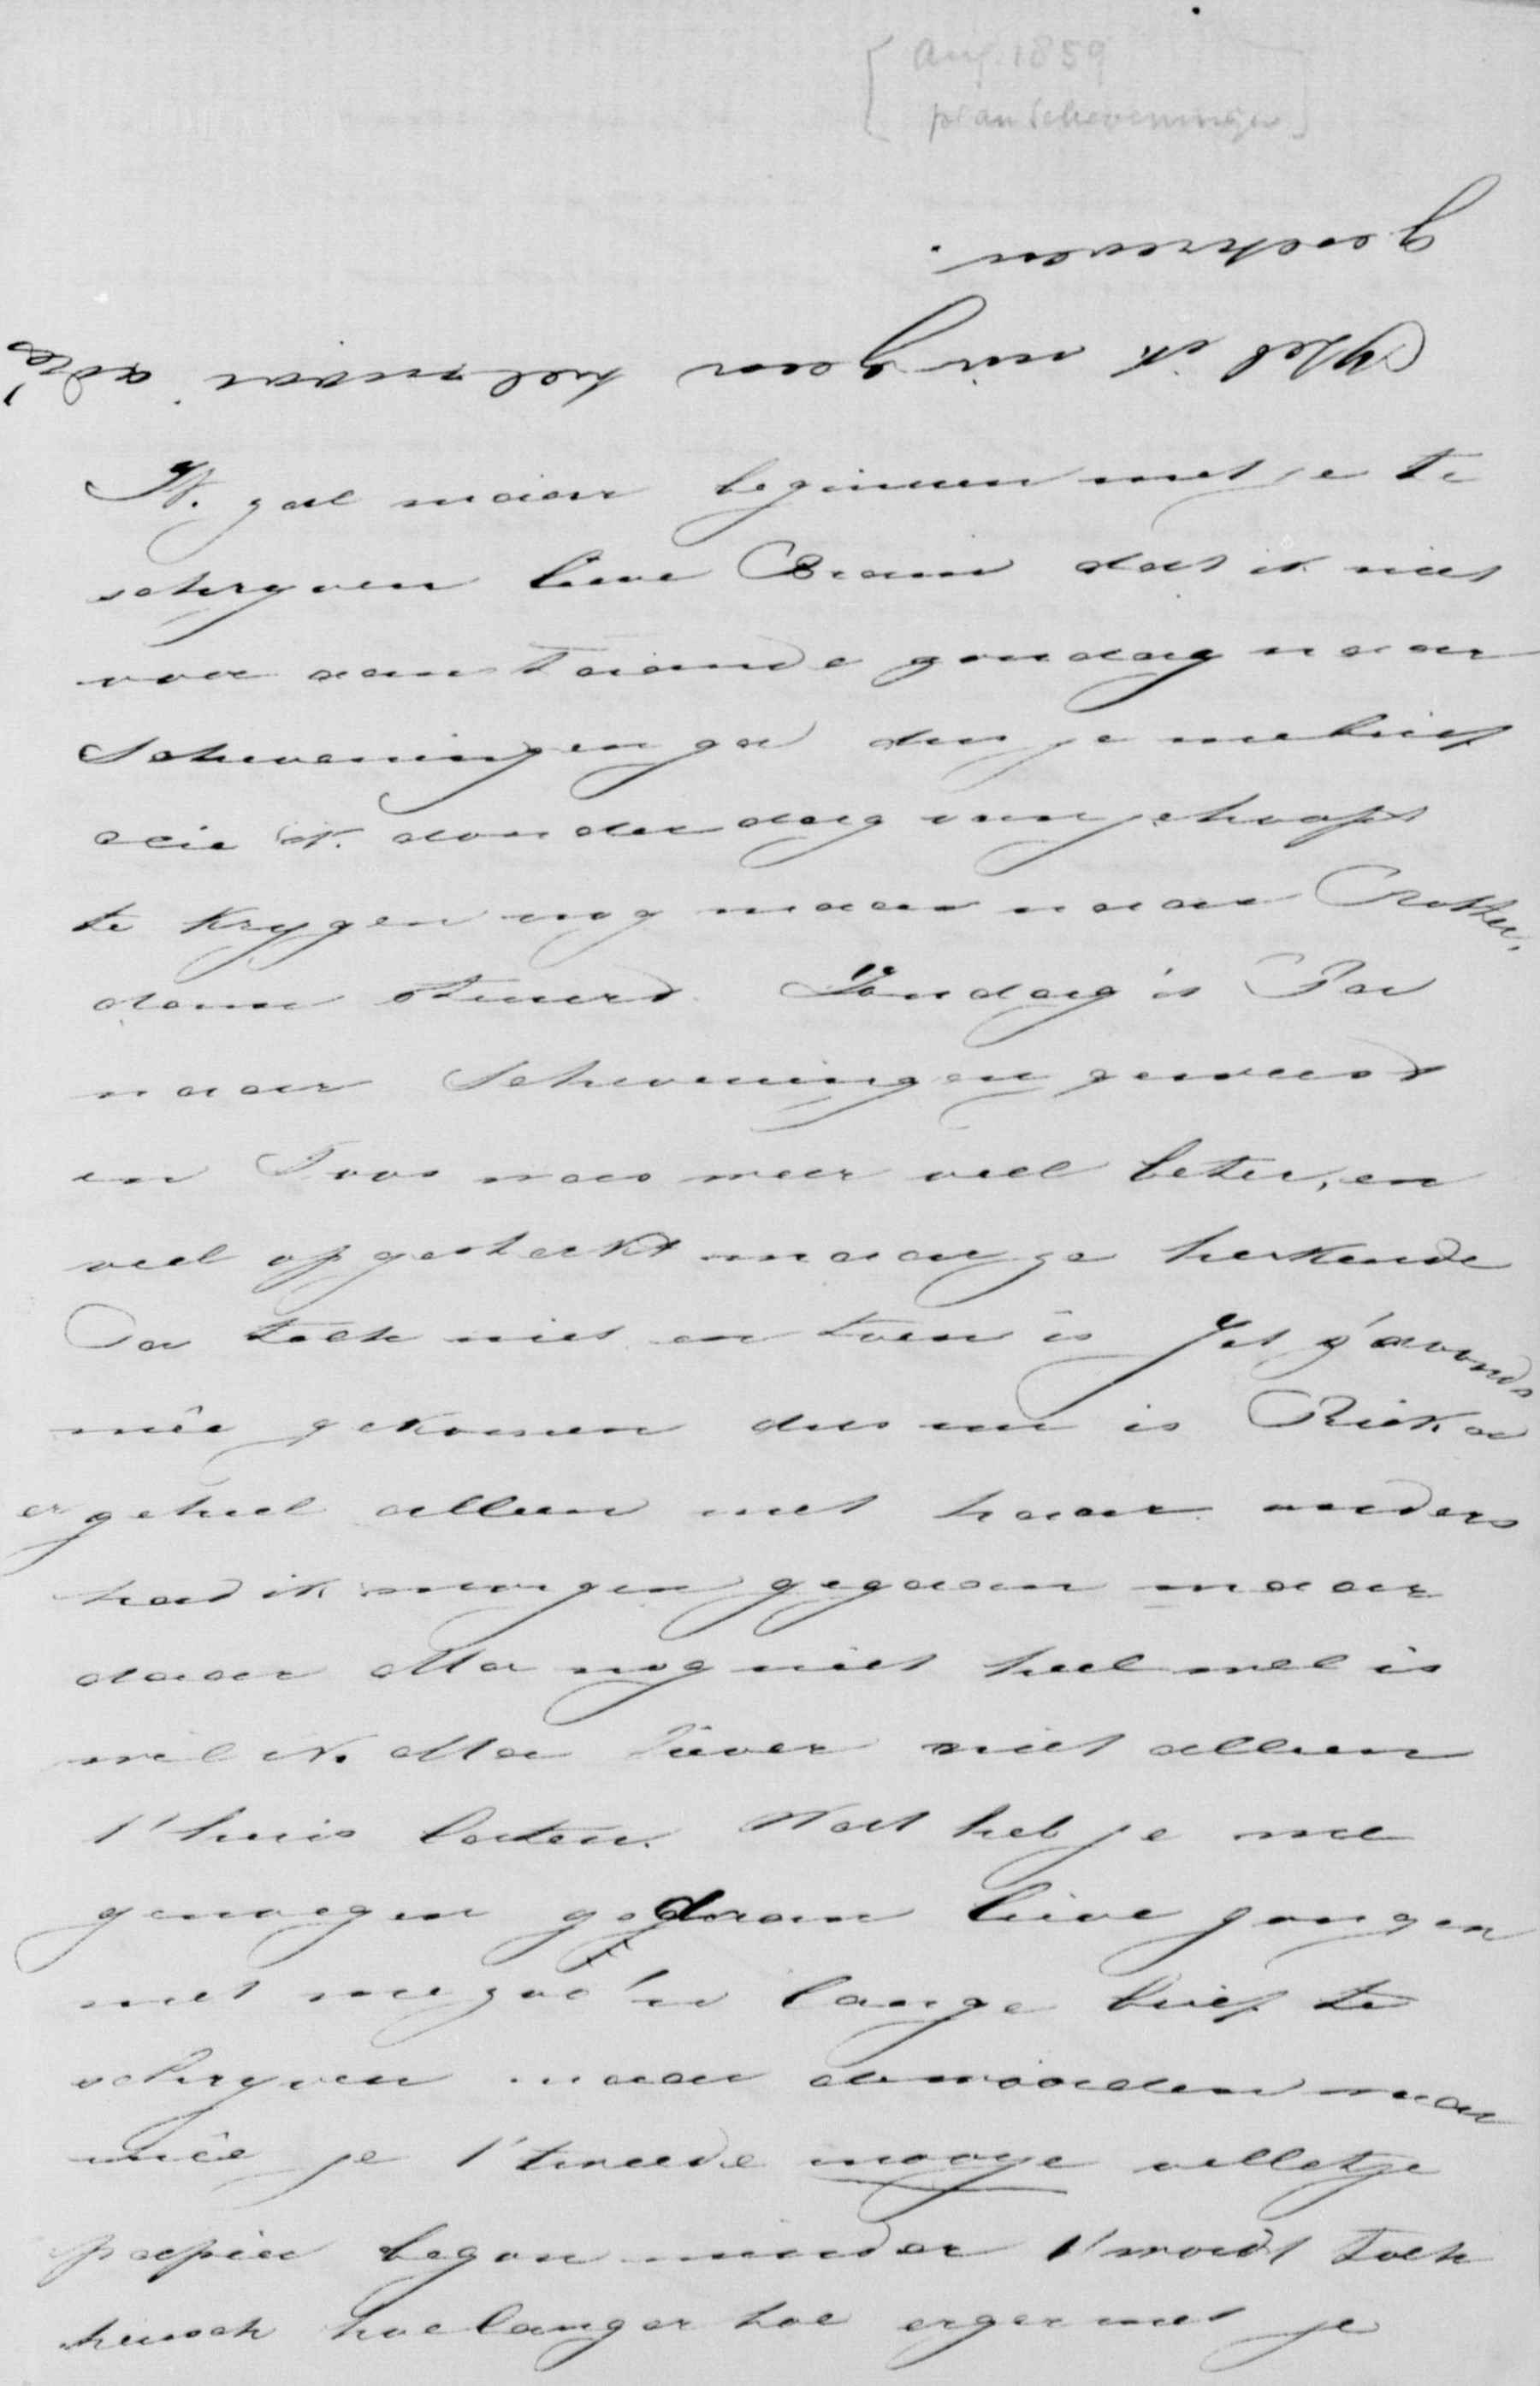 [Aug. 1859
plan Scheveningen]
geschreven.
Heb ik nu geen heel mooi adres
Ik zal maar beginnen met je te
schryven lieve Bram dat ik niet
voor aanstaande zondag naar
Scheveningen ga dus je me brief
die ik donderdag van je hoop
te krygen nog maar naar Rotter,
dam stuurd. Zondag is Pa
naar Scheveningen geweest
en Toos was weer veel beter, en
veel opgewekt maar ze herkende
Pa toch niet en toen is Jet s'avonds
mêe gekomen dus nu is Rika
er geheel alleen met haar anders
had ik morgen gegaan maar
daar Ma nog niet heel wel is
wil ik Ma liever niet alleen
t'huis laten. Wat heb je me
genoegen gedaan lieve jongen
met me zoo'n lange brief te
schryven maar
mêe je t'tweede mooye velletje
papier begon minder t'wordt toch
heusch hoe langer hoe erger met je